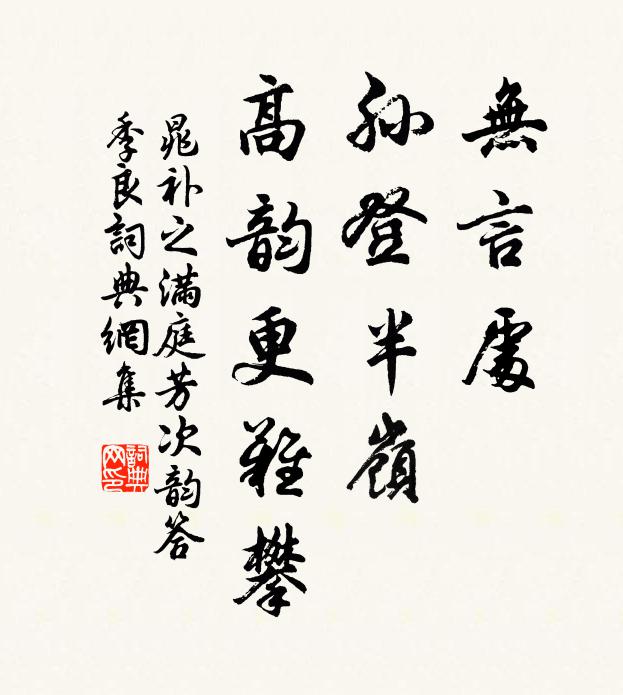 無言處
孫登半嶺
高韵更難攀
晁补之滿庭芳次韵答
季良詞典網集
詞典网印